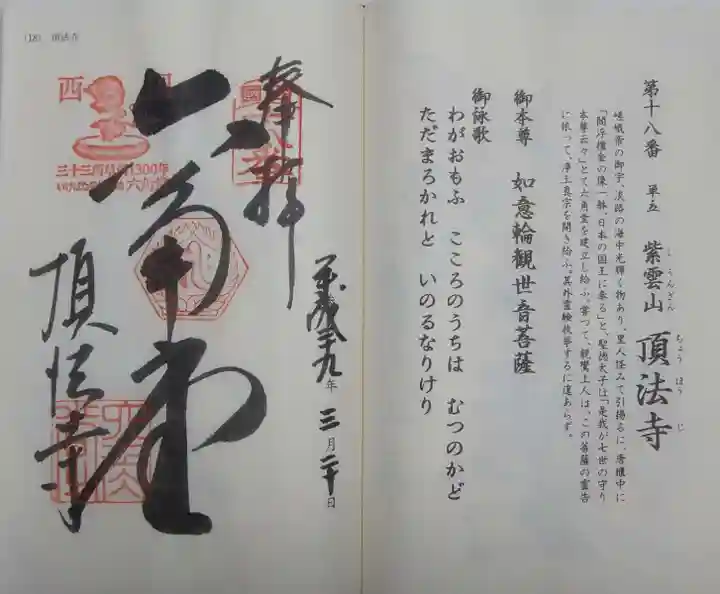 第十八番 単立 紫雲山 頂法寺
しうんざん ちょうほうじ
嵯峨帝の御宇、淡路の海中光輝く物あり、里人怪みて引揚るに、唐櫃中に
「閻浮檀金の像一躰、日本の国王に奉る」と、聖徳太子は「是我が七世の守り
本尊云々」とて六角堂を建立し給ふ。嘗つて、親鸞上人は、この菩薩の霊告
に依って、浄土真宗を開き給ふ。其外霊験枚挙するに遑あらず。
御本尊 如意輪観世音菩薩
御詠歌
わがおもふ こころのうちは むつのかど
ただまろかれと いのるなりけり
(18) 頂法寺
奉拝
平成二十九年 三月二十日
西国
三十三所草創1300年
六角堂
頂法寺